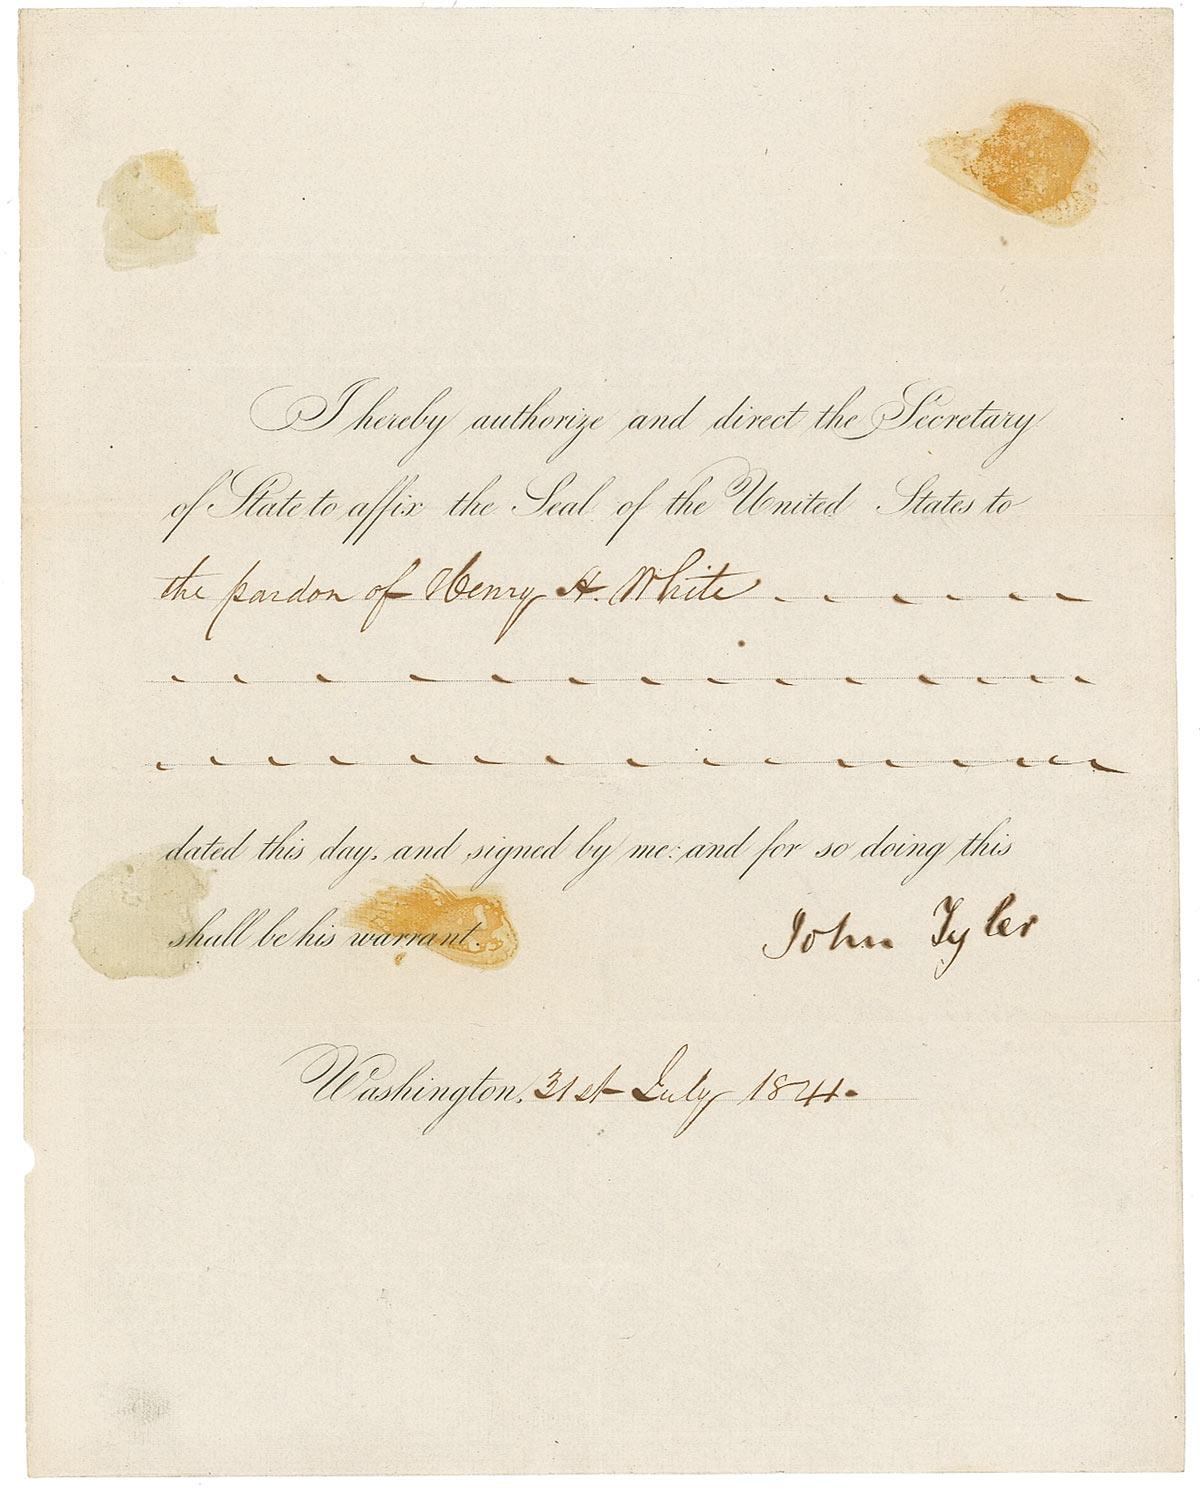 I hereby authorize and direct the Secretary
of State to affix the Seal of the United States to
the pardon of Henry H. White
dated this day, and signed by me: and for so doing this
shall be his warrant.
John Tyler
Washington, 31st July 1841.